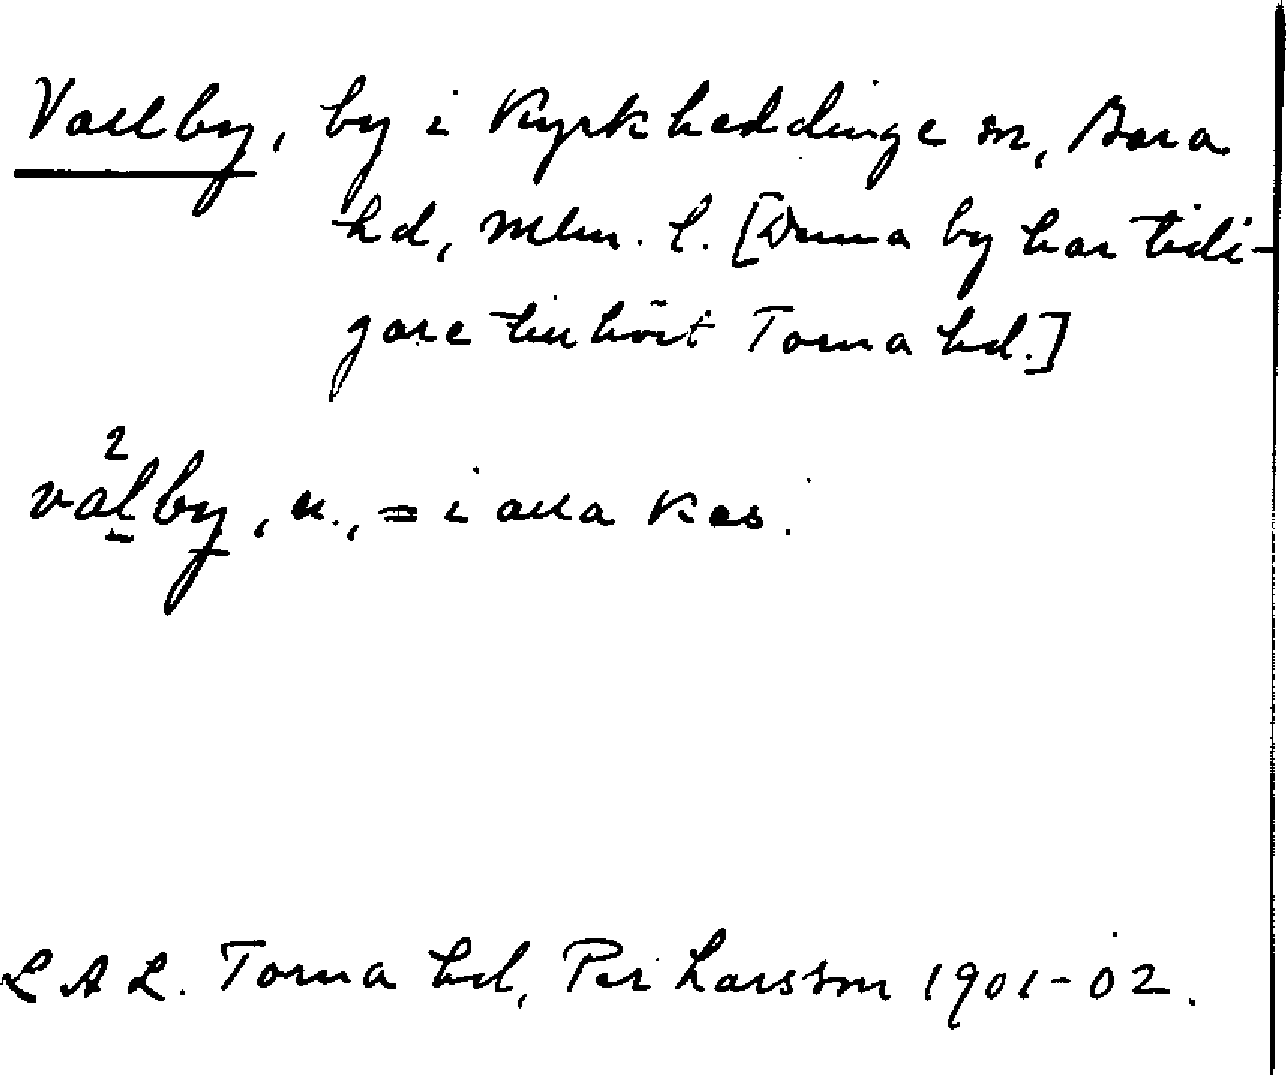 Vallby, by i Kyrkheddinge sn, Bara
hd, Mlm. l. [Denna by har tidi-
gare tillhört Torna hd.]
va²lby, n., = i alla kas.
L A L. Torna hd, Per Larsson 1901-02.